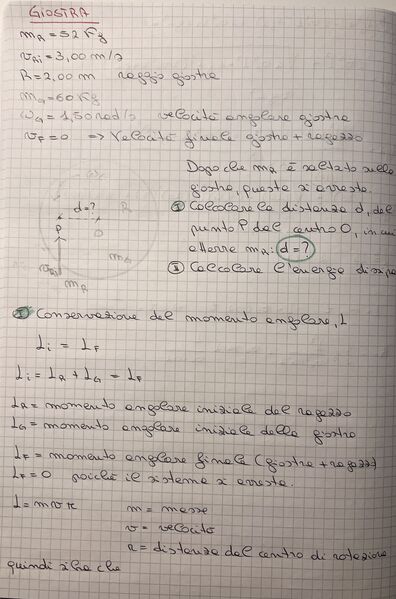 GIOSTRA
m_R = 52 Kg
v_Ri = 3,00 m/s
R = 2,00 m raggio giostra
m_G = 60 Kg
ω_G = 1,50 rad/s velocità angolare giostra
v_F = 0 => Velocità finale giostra + ragazzo
Dopo che m_R è saltato sulla
giostra, questa si arresta.
I Calcolare la distanza d, del
punto P dal centro O, in cui
atterra m_R: d = ?
II Calcolare l'energia
d = ?
R
P
O
m_G
v_Ri
m_R
I Conservazione del momento angolare, L
L_i = L_F
L_i = L_R + L_G = L_F
L_R = momento angolare iniziale del ragazzo
L_G = momento angolare iniziale della giostra
L_F = momento angolare finale (giostra + ragazzo)
L_F = 0 poiché il sistema si arresta.
L = m v r m = massa
v = velocità
r = distanza dal centro di rotazione
quindi si ha che